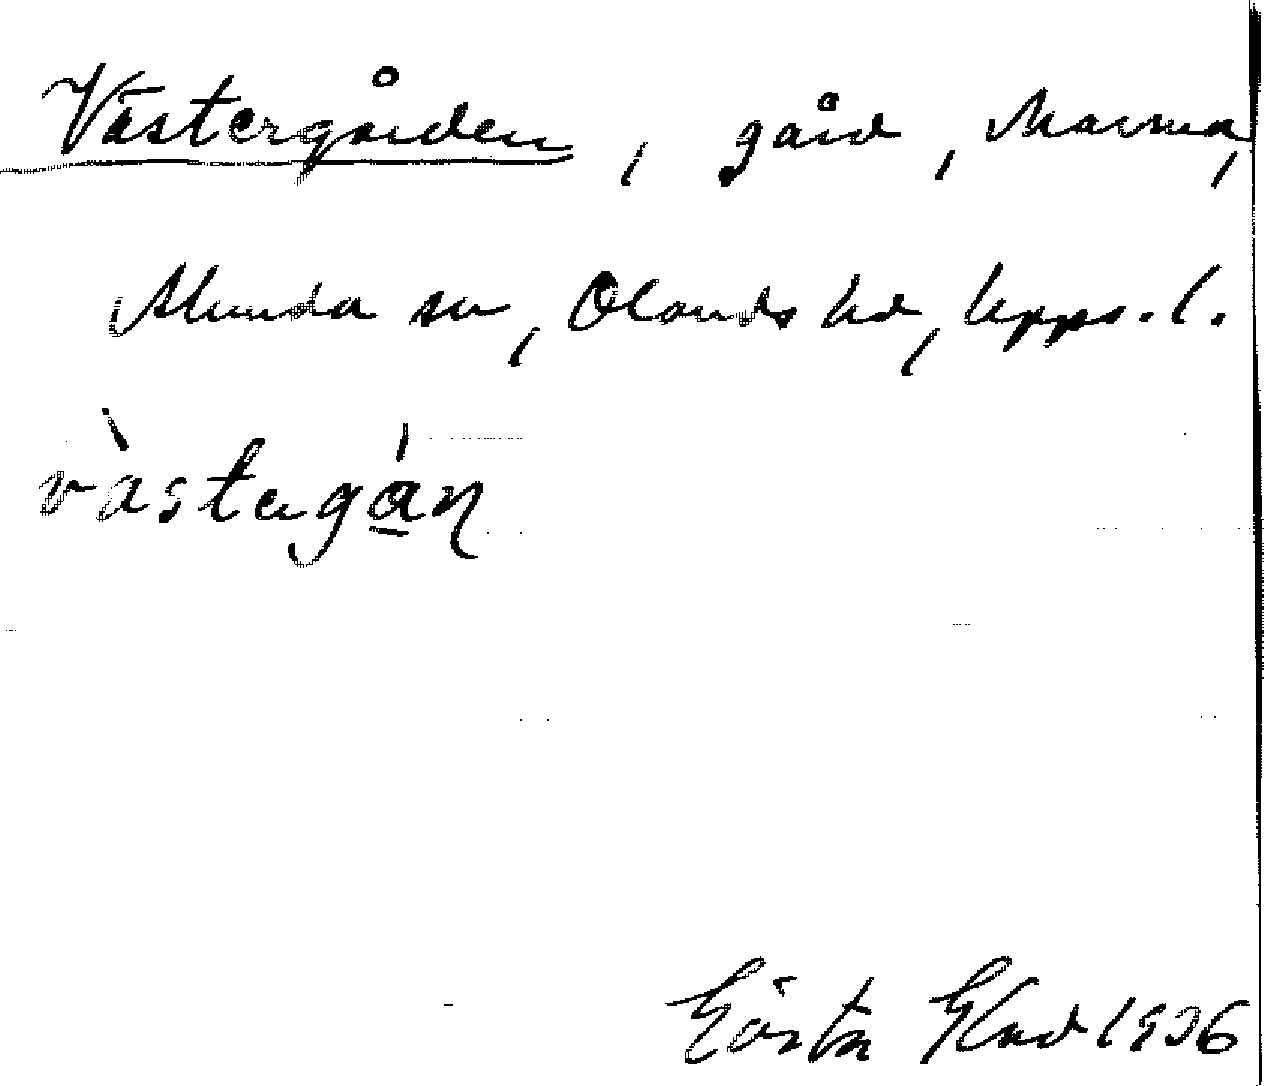 Västergården, gård, Marma,
Alunda sn, Olands hd, Upps. l.
vàstergá̱n
Gösta Glad 1936